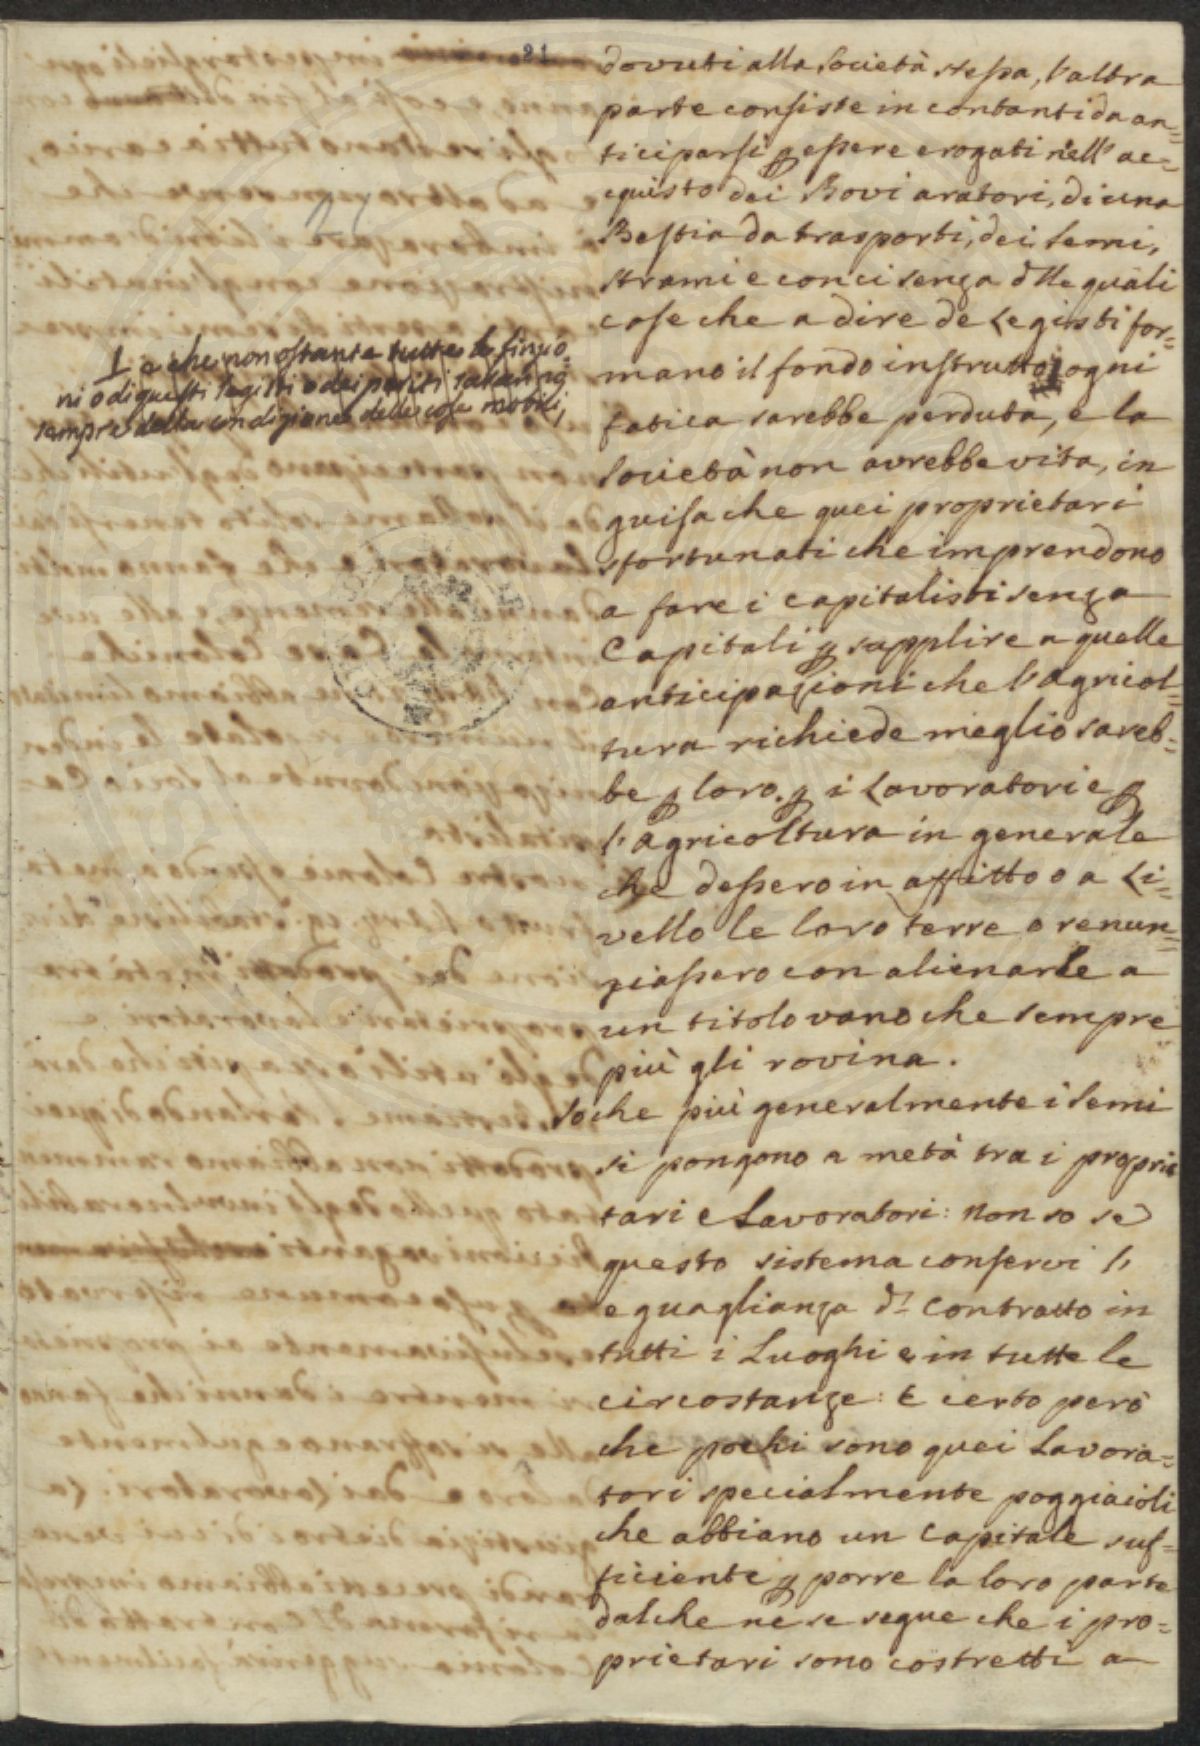 21
dovuti alla Società stessa, l'altra
parte consiste in contanti da an=
ticiparsi p essere erogati nell' ac=
quisto dei Bovi aratori, di una
Bestia da trasporti, dei semi,
strami e conci senza dlle quali
cose che a dire de Legisti for=
mano il fondo instrutto ogni
fatica sarebbe perduta, e la
società non avrebbe vita, in
guisa che quei proprietari
sfortunati che imprendono
a fare i capitalisti senza
Capitali p supplire a quelle
anticipazioni che l'agricol=
tura richiede meglio sareb=
be p loro, p i Lavoratori e p
l'agricoltura in generale
che dessero in affitto o a Li=
vello le loro terre o renun=
ziassero con alienarle a
un titolo vano che sempre
più gli rovina.
So che più generalmente i semi
si pongono a metà tra i proprie
tari e Lavoratori: non so se
questo sistema conservi l'
eguaglianza dl contratto in
tutti i Luoghi e in tutte le
circostanze: E certo però
che pochi sono quei Lavora=
tori specialmente poggiaioli
che abbiano un Capitale suf=
ficiente p porre la loro parte
dalche ne se segue che i pro=
prietari sono costretti a
I e che non ostante tutte le finzio
ni o di questi legisti o dei periti saranno
sempre della condizione delle cose mobili,